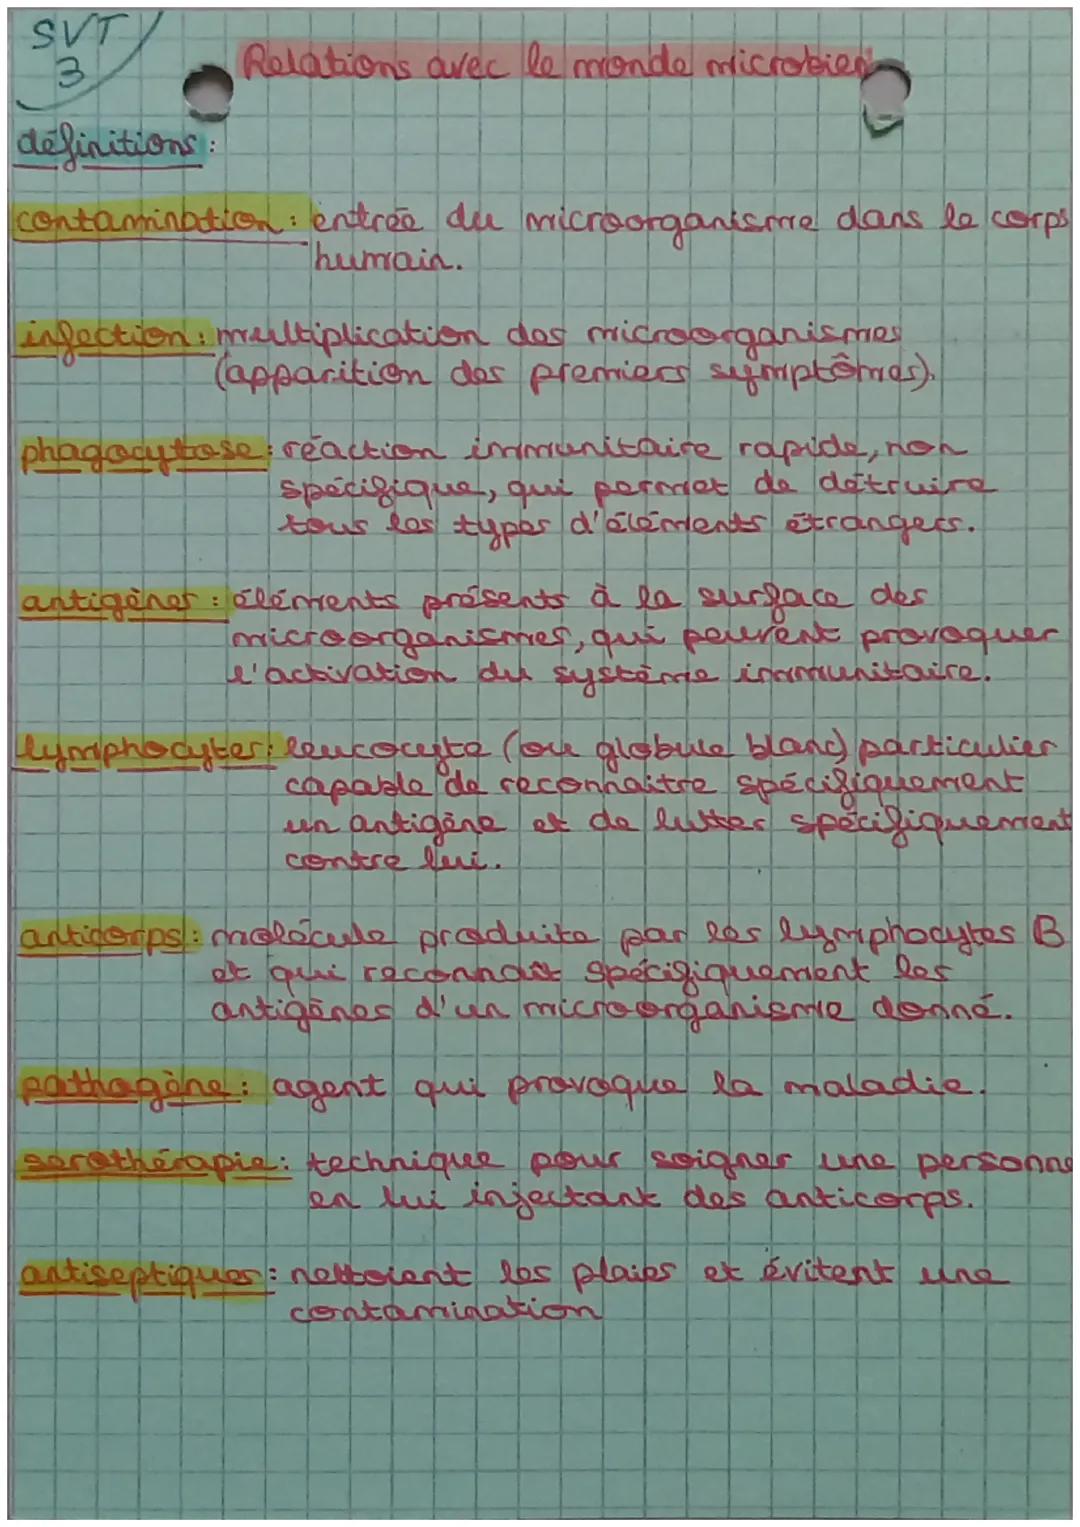 SVT
3
Relations avec le monde microbien
définitions :
contamination : entrée du microorganisme dans le corps
humain.
infection : multiplication des microorganismes
(apparition des premiers symptômes).
phagocytose : réaction immunitaire rapide, non
spécifique, qui permet de détruire
tous les types d'éléments étrangers.
antigènes : éléments présents à la surface des
microorganismes, qui peuvent provoquer
l'activation du système immunitaire.
lymphocytes : leucocyte (ou globule blanc) particulier
capable de reconnaitre spécifiquement
un antigène et de lutter spécifiquement
contre lui.
anticorps : molécule produite par les lymphocytes B
et qui reconnaît spécifiquement les
antigènes d'un microorganisme donné.
pathogène : agent qui provoque la maladie.
serothérapie : technique pour soigner une personne
en lui injectant des anticorps.
antiseptiques : nettoient les plaies et évitent une
contamination